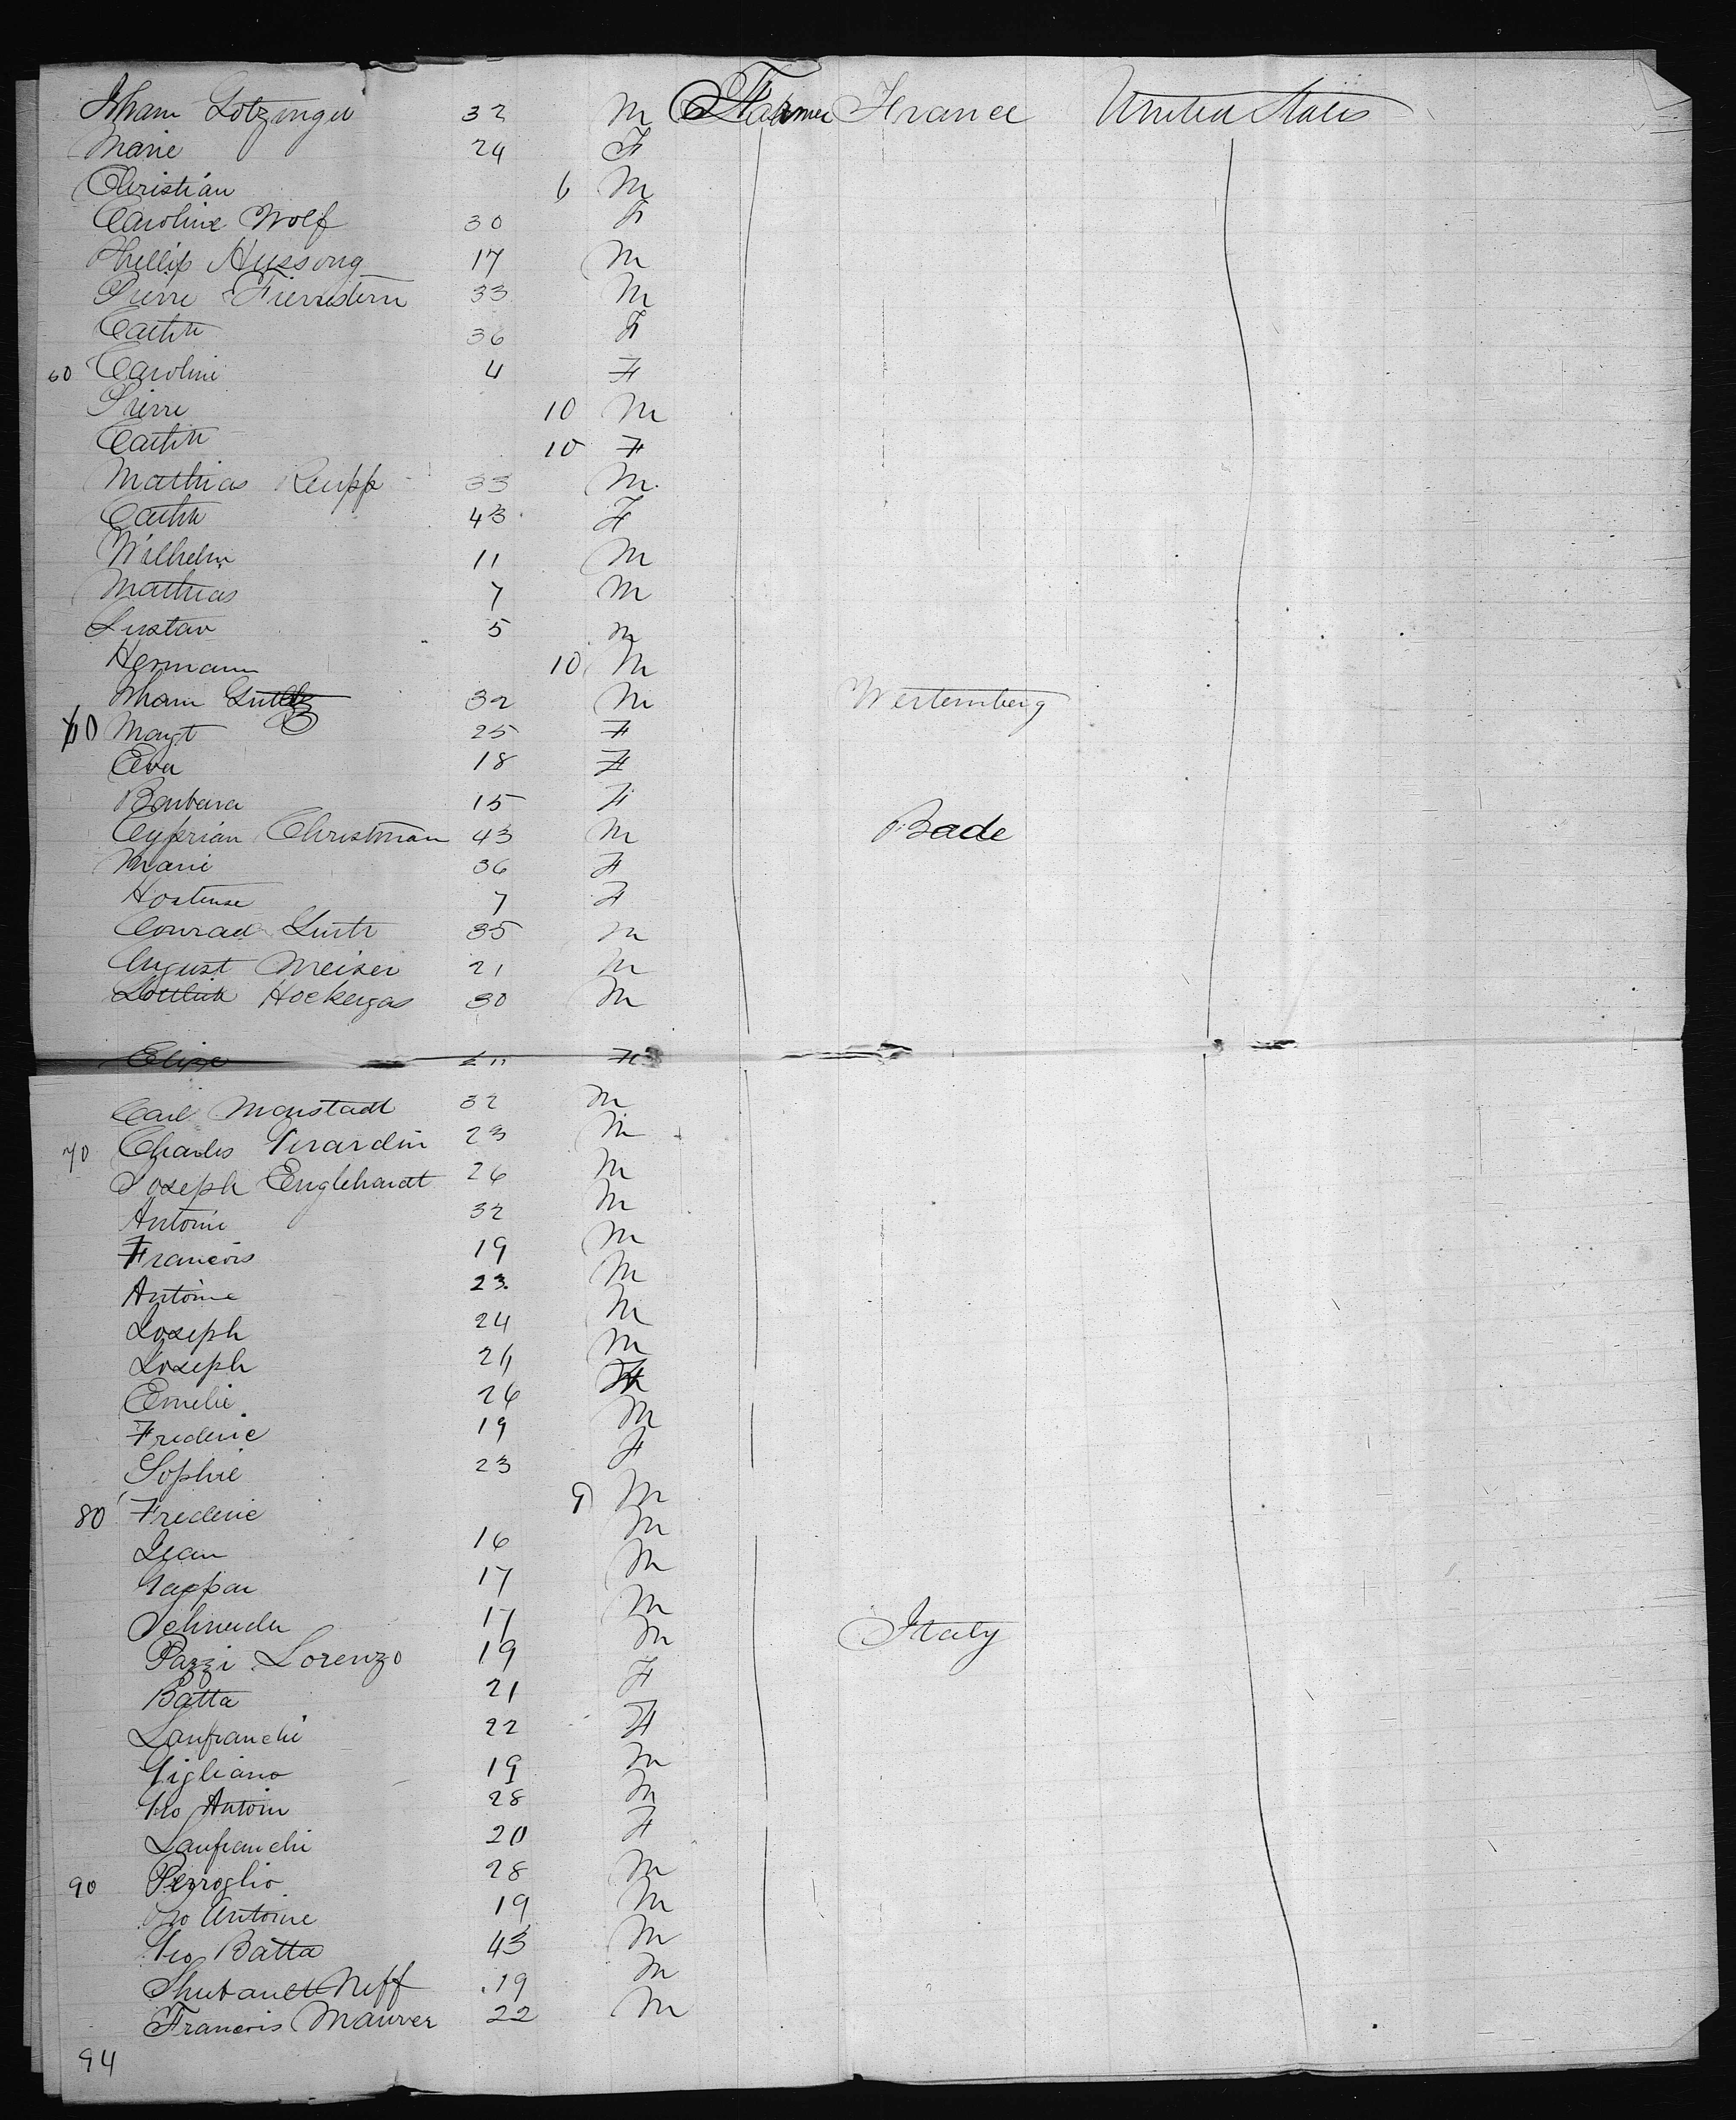 Lotzinger 32 M Farmer France United States
Marie 24 F
Christian 6 M
Caroline Wolf 30 F
Phillip Hussong 17 M
Pierre 33 M
Cathr 36 F
60 Caroline 4 F
Pierre 10 M
Cathr 10 F
Mathias Rupp 33 M
Cathr 43 F
Wilhelm 11 M
Mathias 7 M
Gustav 5 M
Hermann 10 M
32 M Wertemberg
60 Margt 25 F
Eva 18 F
Barbara 15 F
Cyprian Christman 43 M Bade
Marie 36 F
Hortense 7 F
Conrad 35 M
August Meiser 21 M
Hockergas 30 M
Elise F
Carl Monstadt 32 M
70 Charles Girardin 23 M
Joseph Englehardt 26 M
Antoine 32 M
Francois 19 M
Antoine 23 M
Joseph 24 M
Joseph 24 M
Emelie 26 F
Frederic 19 M
Sophie 23 F
80 Frederic 9 M
Jean 16 M
Gaspar 17 M
Schneider 17 M
Pazzi Lorenzo 19 M Italy
Batta 21 F
Lanfranchi 22 F
Gigliano 19 M
Gio Antoin 28 M
Lanfranchi 20 F
90 Perroglio 28 M
Gio Antoine 19 M
Gio Batta 43 M
Neff 19 M
Francois Maurer 22 M
94